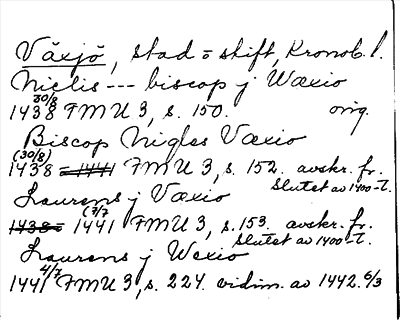 Växjö, stad o stift, Kronob. l.
Niclis --- biscop j Wæxio
1438 30/8 FMU 3, s. 150. orig.
Biscop Nigles Væxio
1438 (30/8) 1441 FMU 3, s. 152. avskr. fr. slutet av 1400-t.
Laurens j Væxio
1438- 1441 (7/7 FMU 3, s. 153. avskr. fr. slutet av 1400-t.
Laurens j Wexio
1441 4/7 FMU 3, s. 224. vidim. av 1442. 6/3